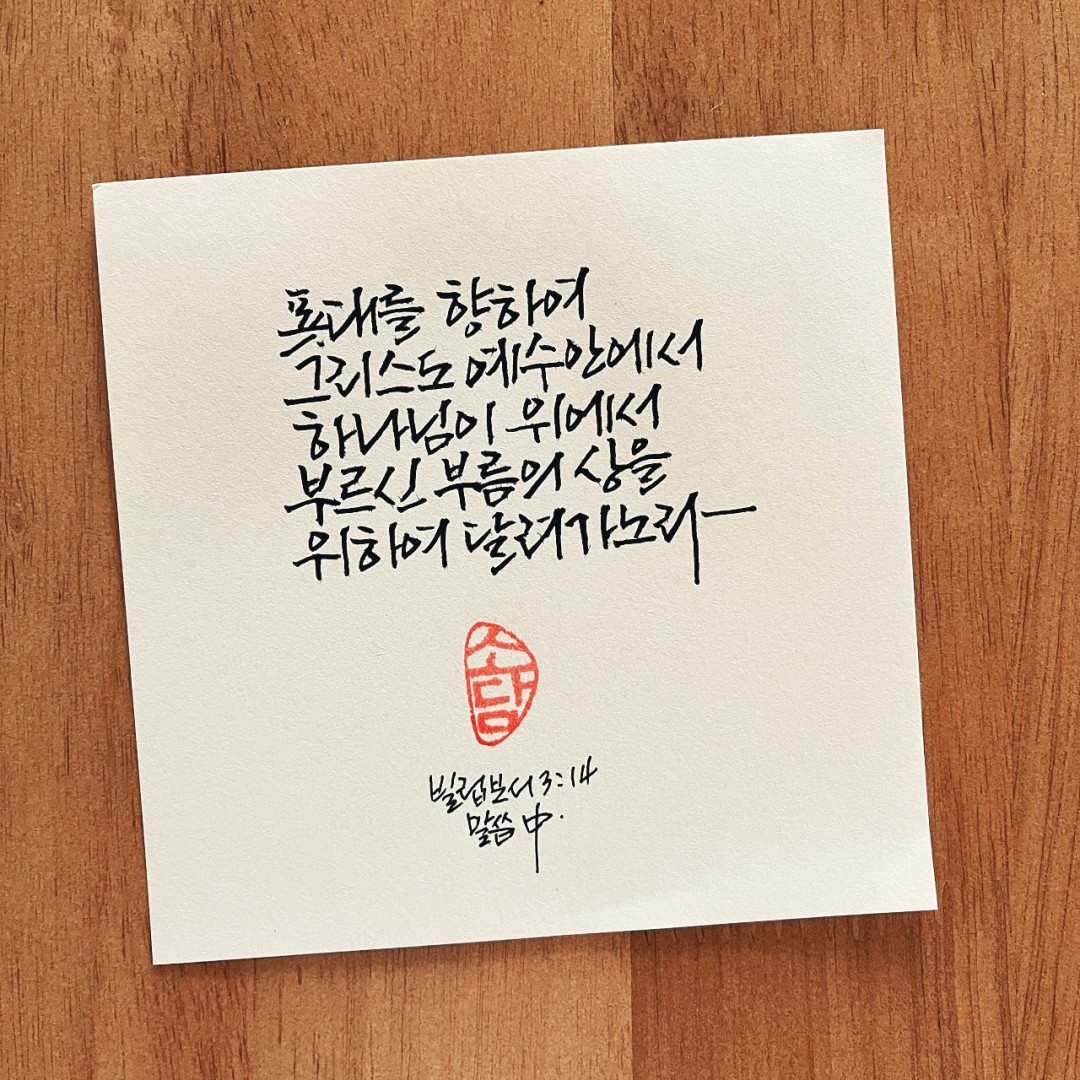 푯대를 향하여
그리스도 예수안에서
하나님이 위에서
부르신 부름의 상을
위하여 달려가노라
소담
빌립보서 3:14
말씀 中.